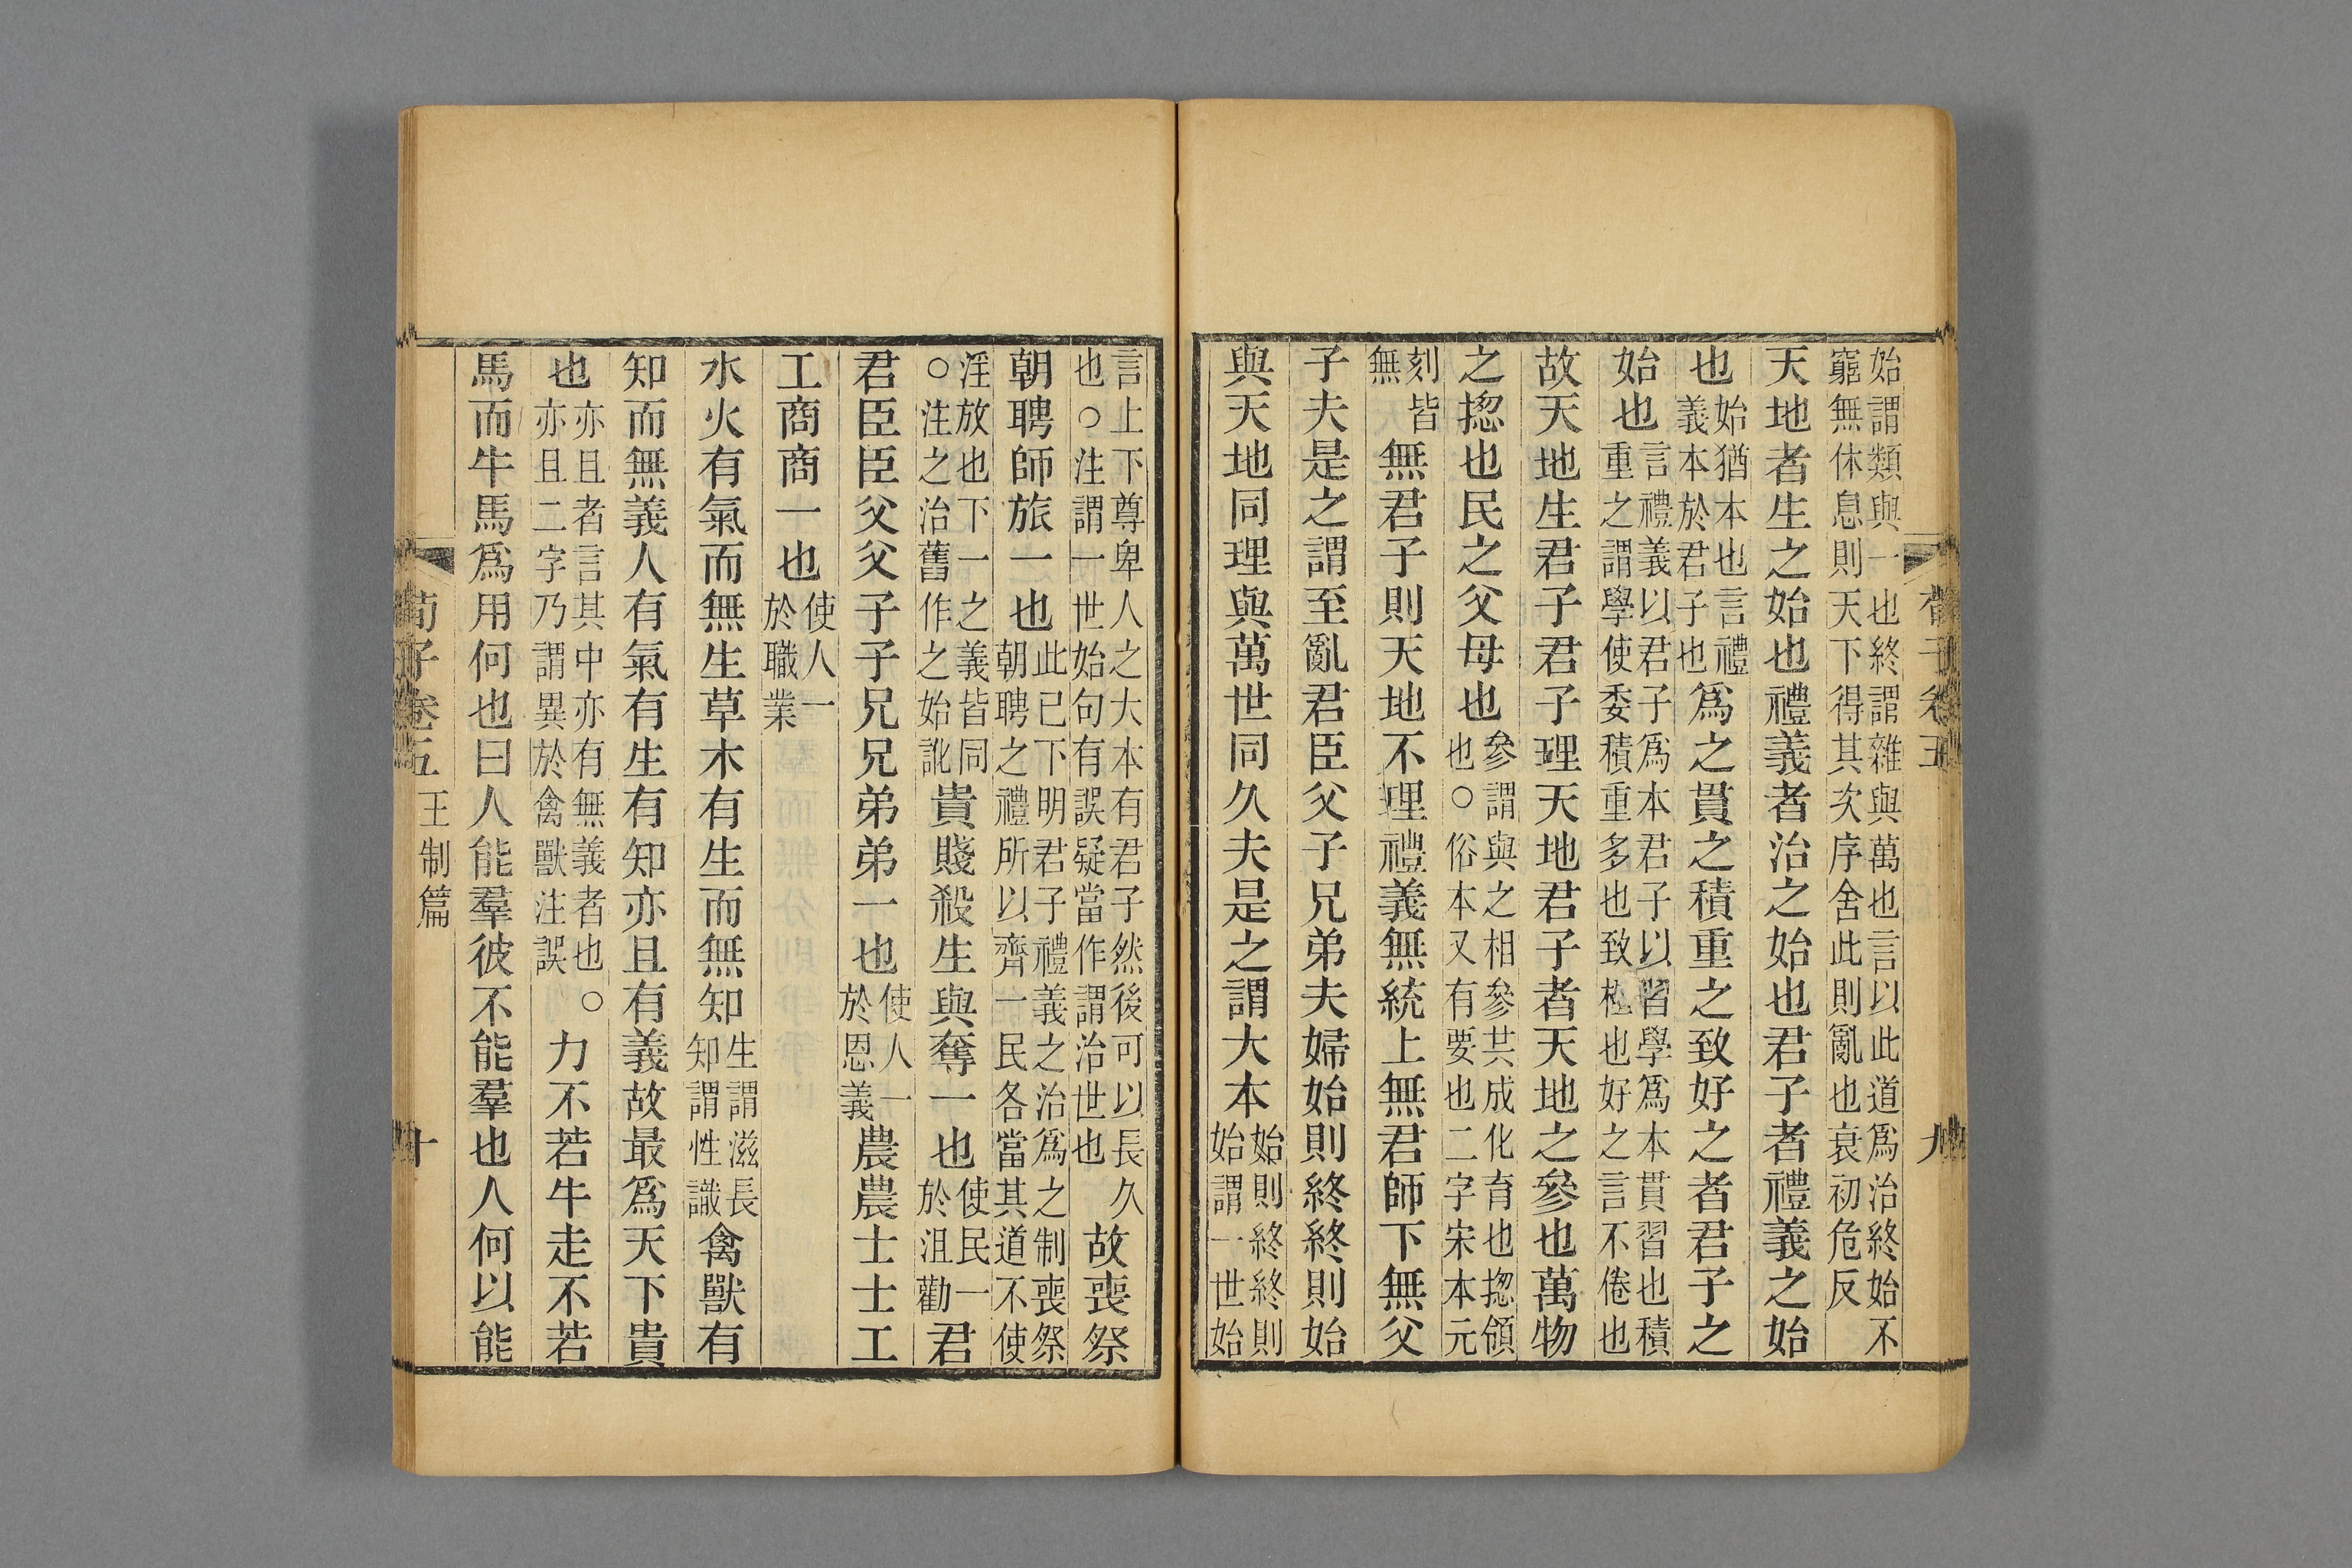 荀子卷五 九
始謂類與一也終謂雜與萬也言以此道爲治終始不窮無休息則天下得其次序舍此則亂也衰初危反
天地者生之始也禮義者治之始也君子者禮義之始
也始猶本也言禮義本於君子也爲之貫之積重之致好之者君子之
始也言禮義以君子爲本君子以習學爲本貫習也積重之謂學使委積重多也致極也好之言不倦也
故天地生君子君子理天地君子者天地之參也萬物
之揔也民之父母也參謂與之相參共成化育也揔領也○俗本又有要也二字宋本元
刻皆無無君子則天地不理禮義無統上無君師下無父
子夫是之謂至亂君臣父子兄弟夫婦始則終終則始
與天地同理與萬世同久夫是之謂大本始則終終則始謂一世始
言上下尊卑人之大本有君子然後可以長久也○注謂一世始句有誤疑當作謂治世也故喪祭
朝聘師旅一也此已下明君子禮義之治爲之制喪祭朝聘之禮所以齊一民各當其道不使
淫放也下一之義皆同○注之治舊作之始訛貴賤殺生與奪一也使民一於沮勸君
君臣臣父父子子兄兄弟弟一也使人一於恩義農農士士工
工商商一也使人一於職業
水火有氣而無生草木有生而無知生謂滋長知謂性識禽獸有
知而無義人有氣有生有知亦且有義故最爲天下貴
也亦且者言其中亦有無義者也○亦且二字乃謂異於禽獸注誤力不若牛走不若
馬而牛馬爲用何也曰人能羣彼不能羣也人何以能
荀子卷五 王制篇 十